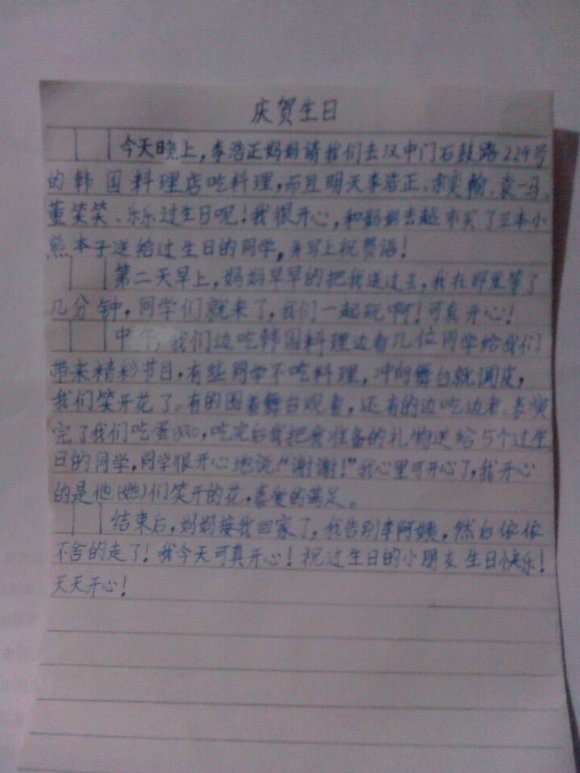 庆贺生日
今天晚上，李浩正妈妈请我们去汉中门石鼓路229号
的韩国料理店吃料理，而且明天李浩正、余奕翰、袁一马、
董笑笑、乐乐过生日呢！我很开心，和妈妈去超市买了五本小
熊本子送给过生日的同学，并写上祝贺语！
第二天早上，妈妈早早的把我送过去，我在那里等了
几分钟，同学们就来了，我们一起玩啊！可真开心！
中午，我们边吃韩国料理边看几位同学给我们
带来精彩节目，有些同学不吃料理，冲向舞台就调皮，
我们笑开花了。有的围着舞台观看，还有的边吃边看。表演
完了我们吃蛋gao，吃完后我把我准备的礼物送给5个过生
日的同学，同学很开心地说："谢谢！"我心里可开心了，我开心
的是他(她)们笑开的花，喜爱的满足。
结束后，妈妈接我回家了，我告别李阿姨，然后依依
不舍的走了！我今天可真开心！祝过生日的小朋友生日快乐！
天天开心！